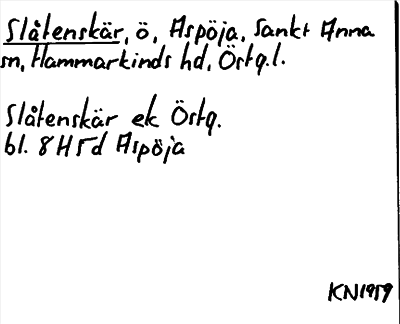 Slåtenskär, ö, Aspöja, Sankt Anna
sn, Hammarkinds hd, Östg.l.
Slåtenskär ek Östg.
bl. 8H5d Aspöja
KN1959